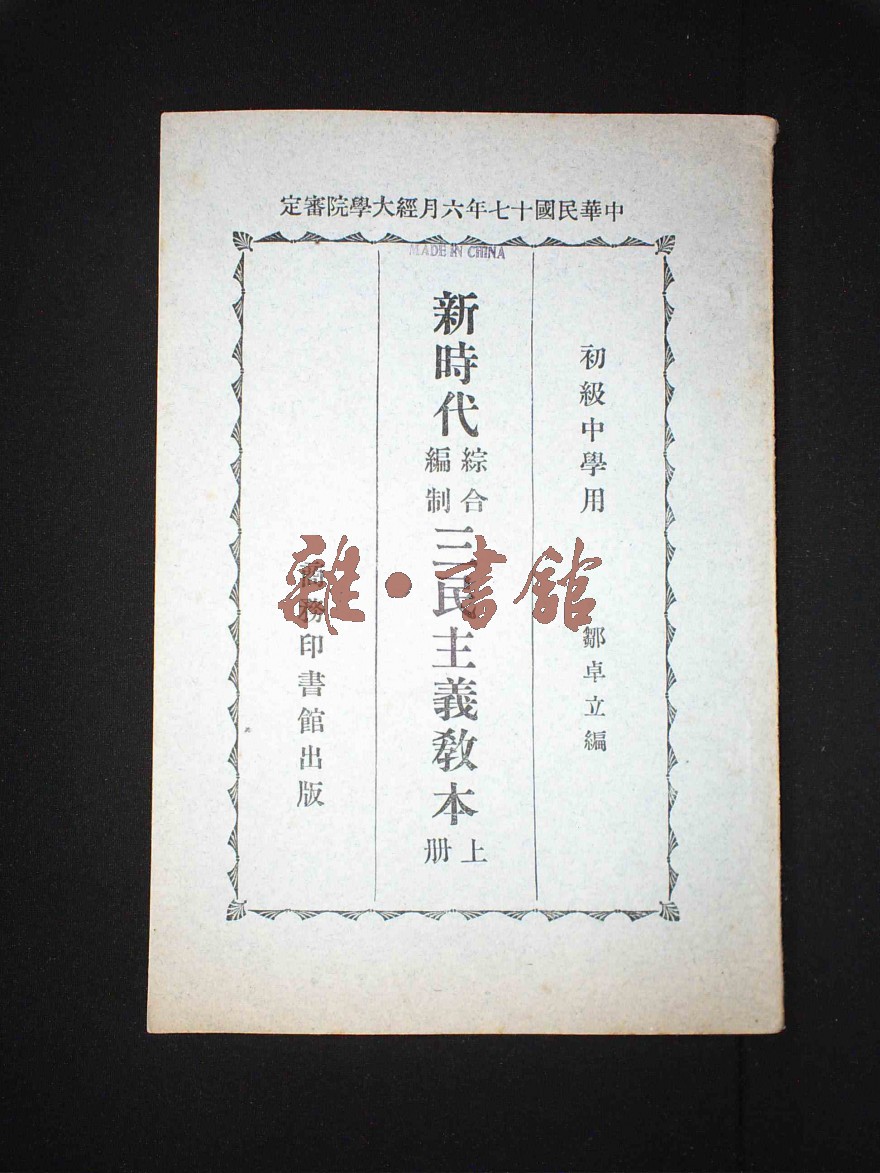 中華民國十七年六月經大學院審定
MADE IN CHINA
初級中學用
鄒卓立編
新時代
綜合
編制
三民主義教本
上
册
商務印書館出版
雜·書館